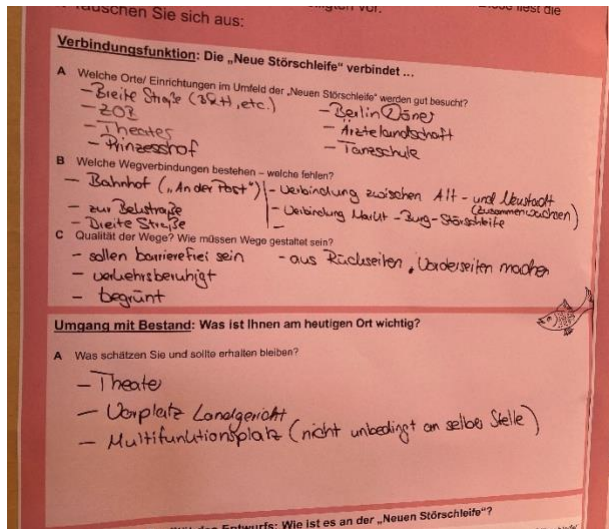 tauschen Sie sich aus:
vor.
Diese liest die
Verbindungsfunktion: Die „Neue Störschleife“ verbindet ...
A Welche Orte/ Einrichtungen im Umfeld der „Neuen Störschleife“ werden gut besucht?
- Breite Straße (          , etc.)
- ZOB
- Theater
- Prinzesshof
- Berlin Döner
- Ärztelandschaft
- Tanzschule
B Welche Wegverbindungen bestehen – welche fehlen?
- Bahnhof („An der Post")
- zur
- Breite Straße
- Verbindung zwischen Alt- und Neustadt
(zusammenwachsen)
- Verbindung Markt - Burg - Störschleife
-
C Qualität der Wege? Wie müssen Wege gestaltet sein?
- sollen barrierefrei sein
- verkehrsberuhigt
- begrünt
- aus Rückseiten, Vorderseiten machen
Umgang mit Bestand: Was ist Ihnen am heutigen Ort wichtig?
A Was schätzen Sie und sollte erhalten bleiben?
- Theater
- Vorplatz Landgericht
- Multifunktionsplatz (nicht unbedingt an selber Stelle)
des Entwurfs: Wie ist es an der „Neuen Störschleife“?